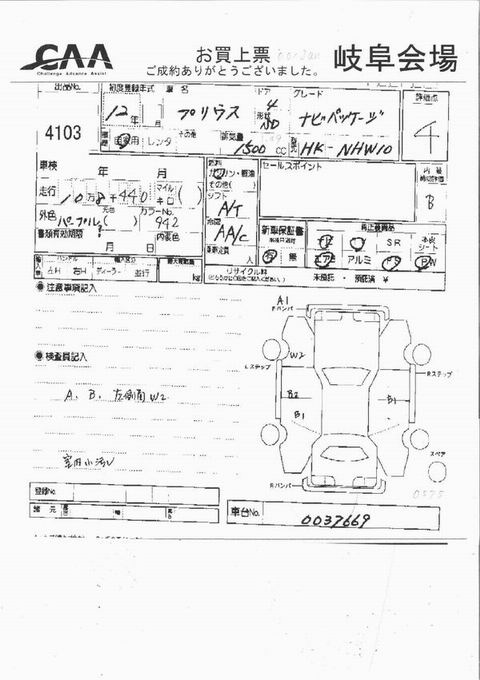 CAA
Challenge Advance Assist
お買上票
ご成約ありがとうございました。
岐阜会場
出品No.
4103
初度登録年式
12年 月
車名
プリウス
ドア
4
形状
SD
グレード
ナビパッケージ
評価点
4
自家用 レンタ その他
排気量
1500 cc
型式
HK-NHW10
車検
年 月
燃料
ガソリン・軽油
その他( )
セールスポイント
内装
B
走行
10万8千440
マイル
キロ
シフト
A/T
外色
パープル
元色
カラーNo.
942
冷房
AA/C
内装色
書類有効期限
月 日
新車保証書
有 無
SR
エアB
アルミ
PS
PW
ハンドル
左H 右H
ディーラー 並行
kg
リサイクル料
未預託 ・ 預託済 ¥
注意事項記入
検査員記入
A、B、左側面W2
室内小汚レ
A1
Fバンパ
W2
Lステップ
Rステップ
B2
B1
B1
スペア
Rバンパー
登録No.
諸元
車台No.
0037669